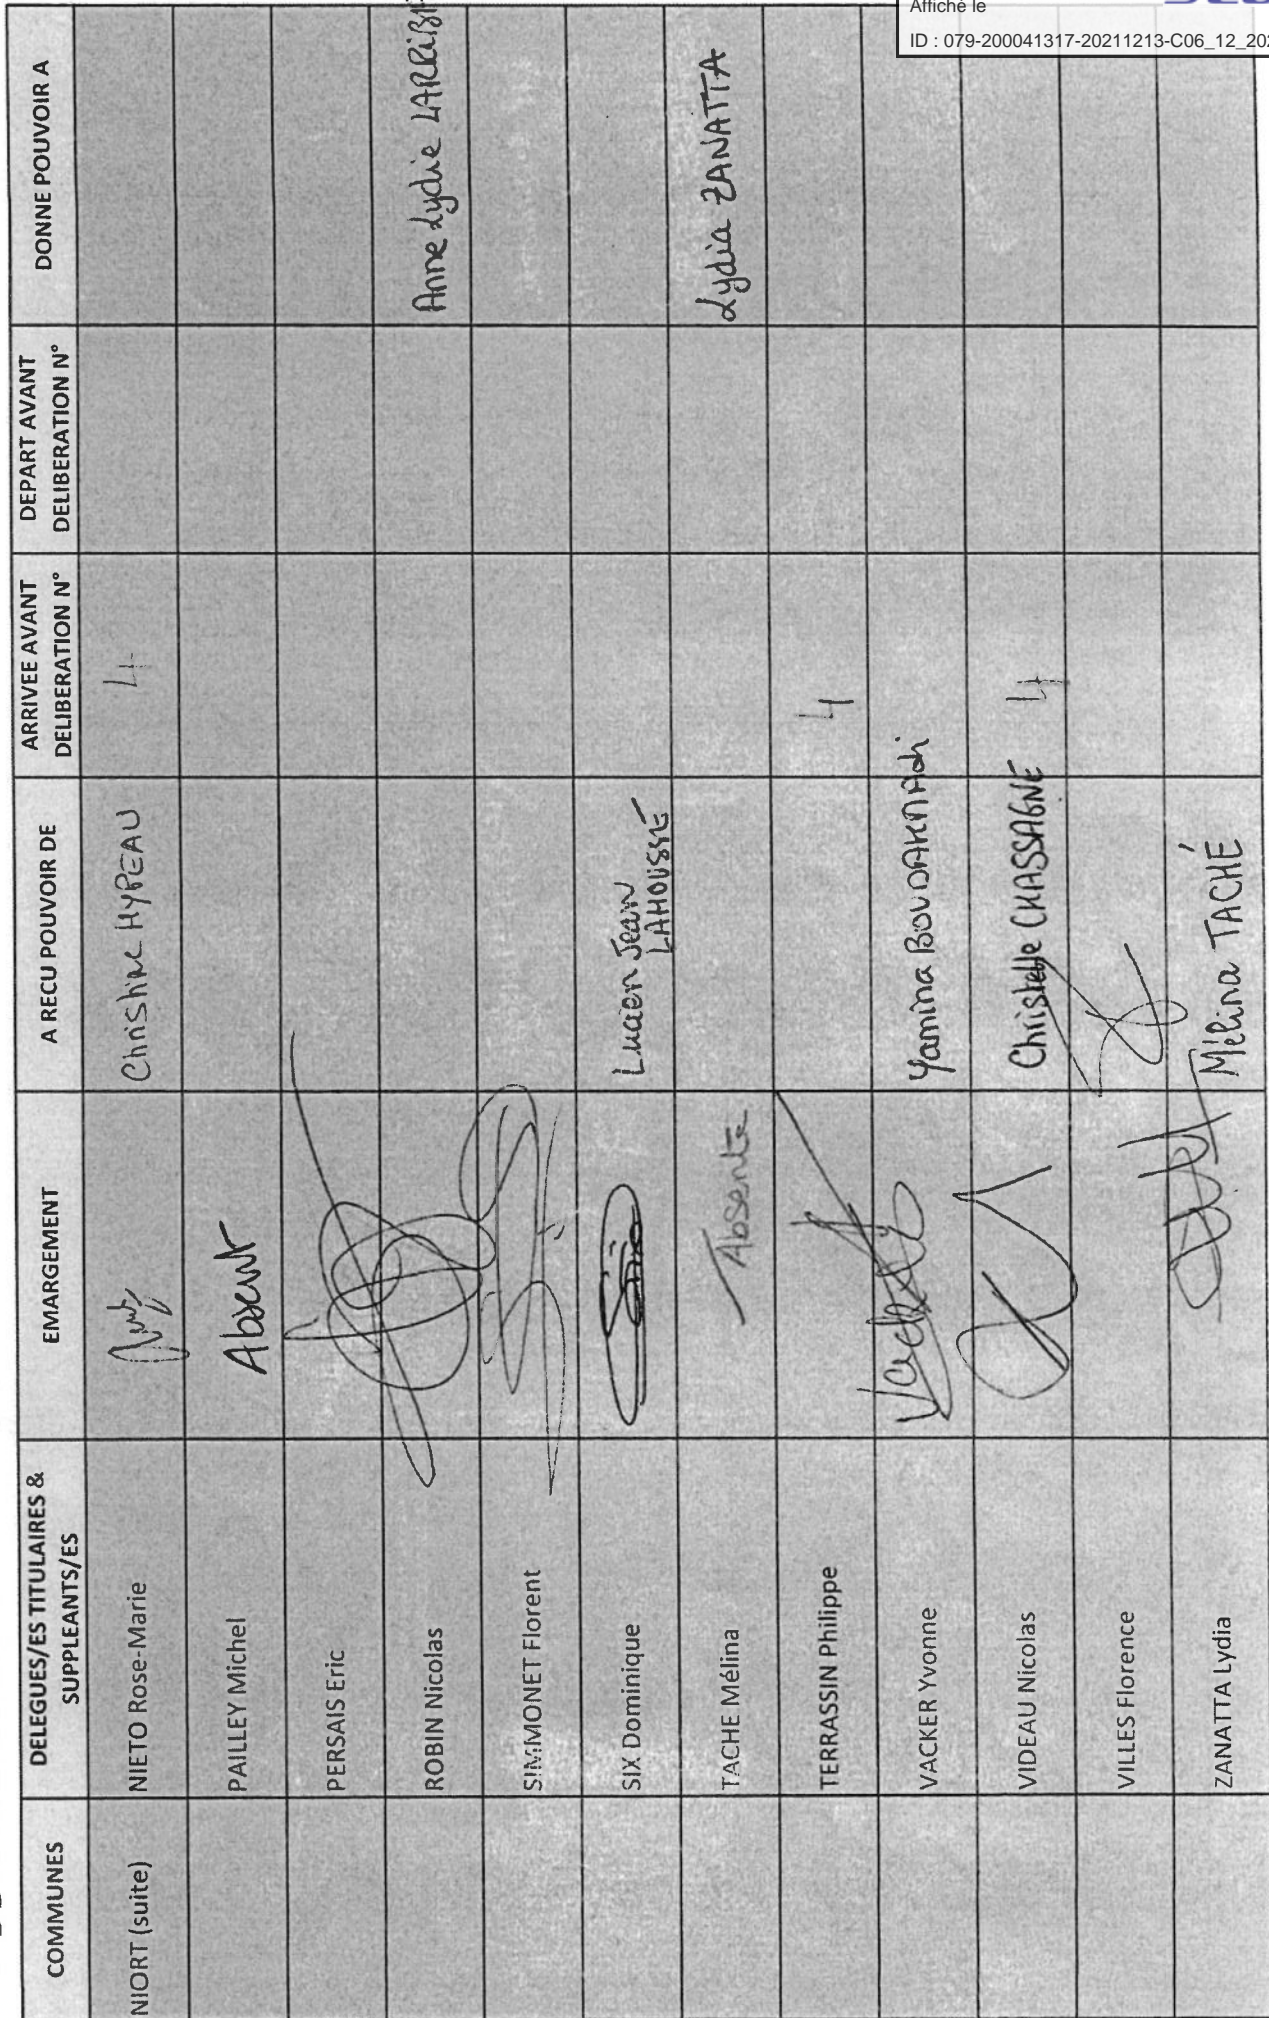 Affiché le
ID : 079-200041317-20211213-C06_12_202
COMMUNES
DELEGUES/ES TITULAIRES &
SUPPLEANTS/ES
EMARGEMENT
A RECU POUVOIR DE
ARRIVEE AVANT
DELIBERATION N°
DEPART AVANT
DELIBERATION N°
DONNE POUVOIR A
NIORT (suite)
NIETO Rose-Marie
Christine HYPEAU
4
PAILLEY Michel
Absent
PERSAIS Eric
ROBIN Nicolas
Anne Lydie LARRIBA
SIMMONET Florent
SIX Dominique
Lucien Jean
LAHOUSSE
TACHE Mélina
Absente
Lydia ZANATTA
TERRASSIN Philippe
4
VACKER Yvonne
Yamina BOUDAHMANI
VIDEAU Nicolas
Christelle CHASSAGNE
4
VILLES Florence
ZANATTA Lydia
Mélina TACHÉ